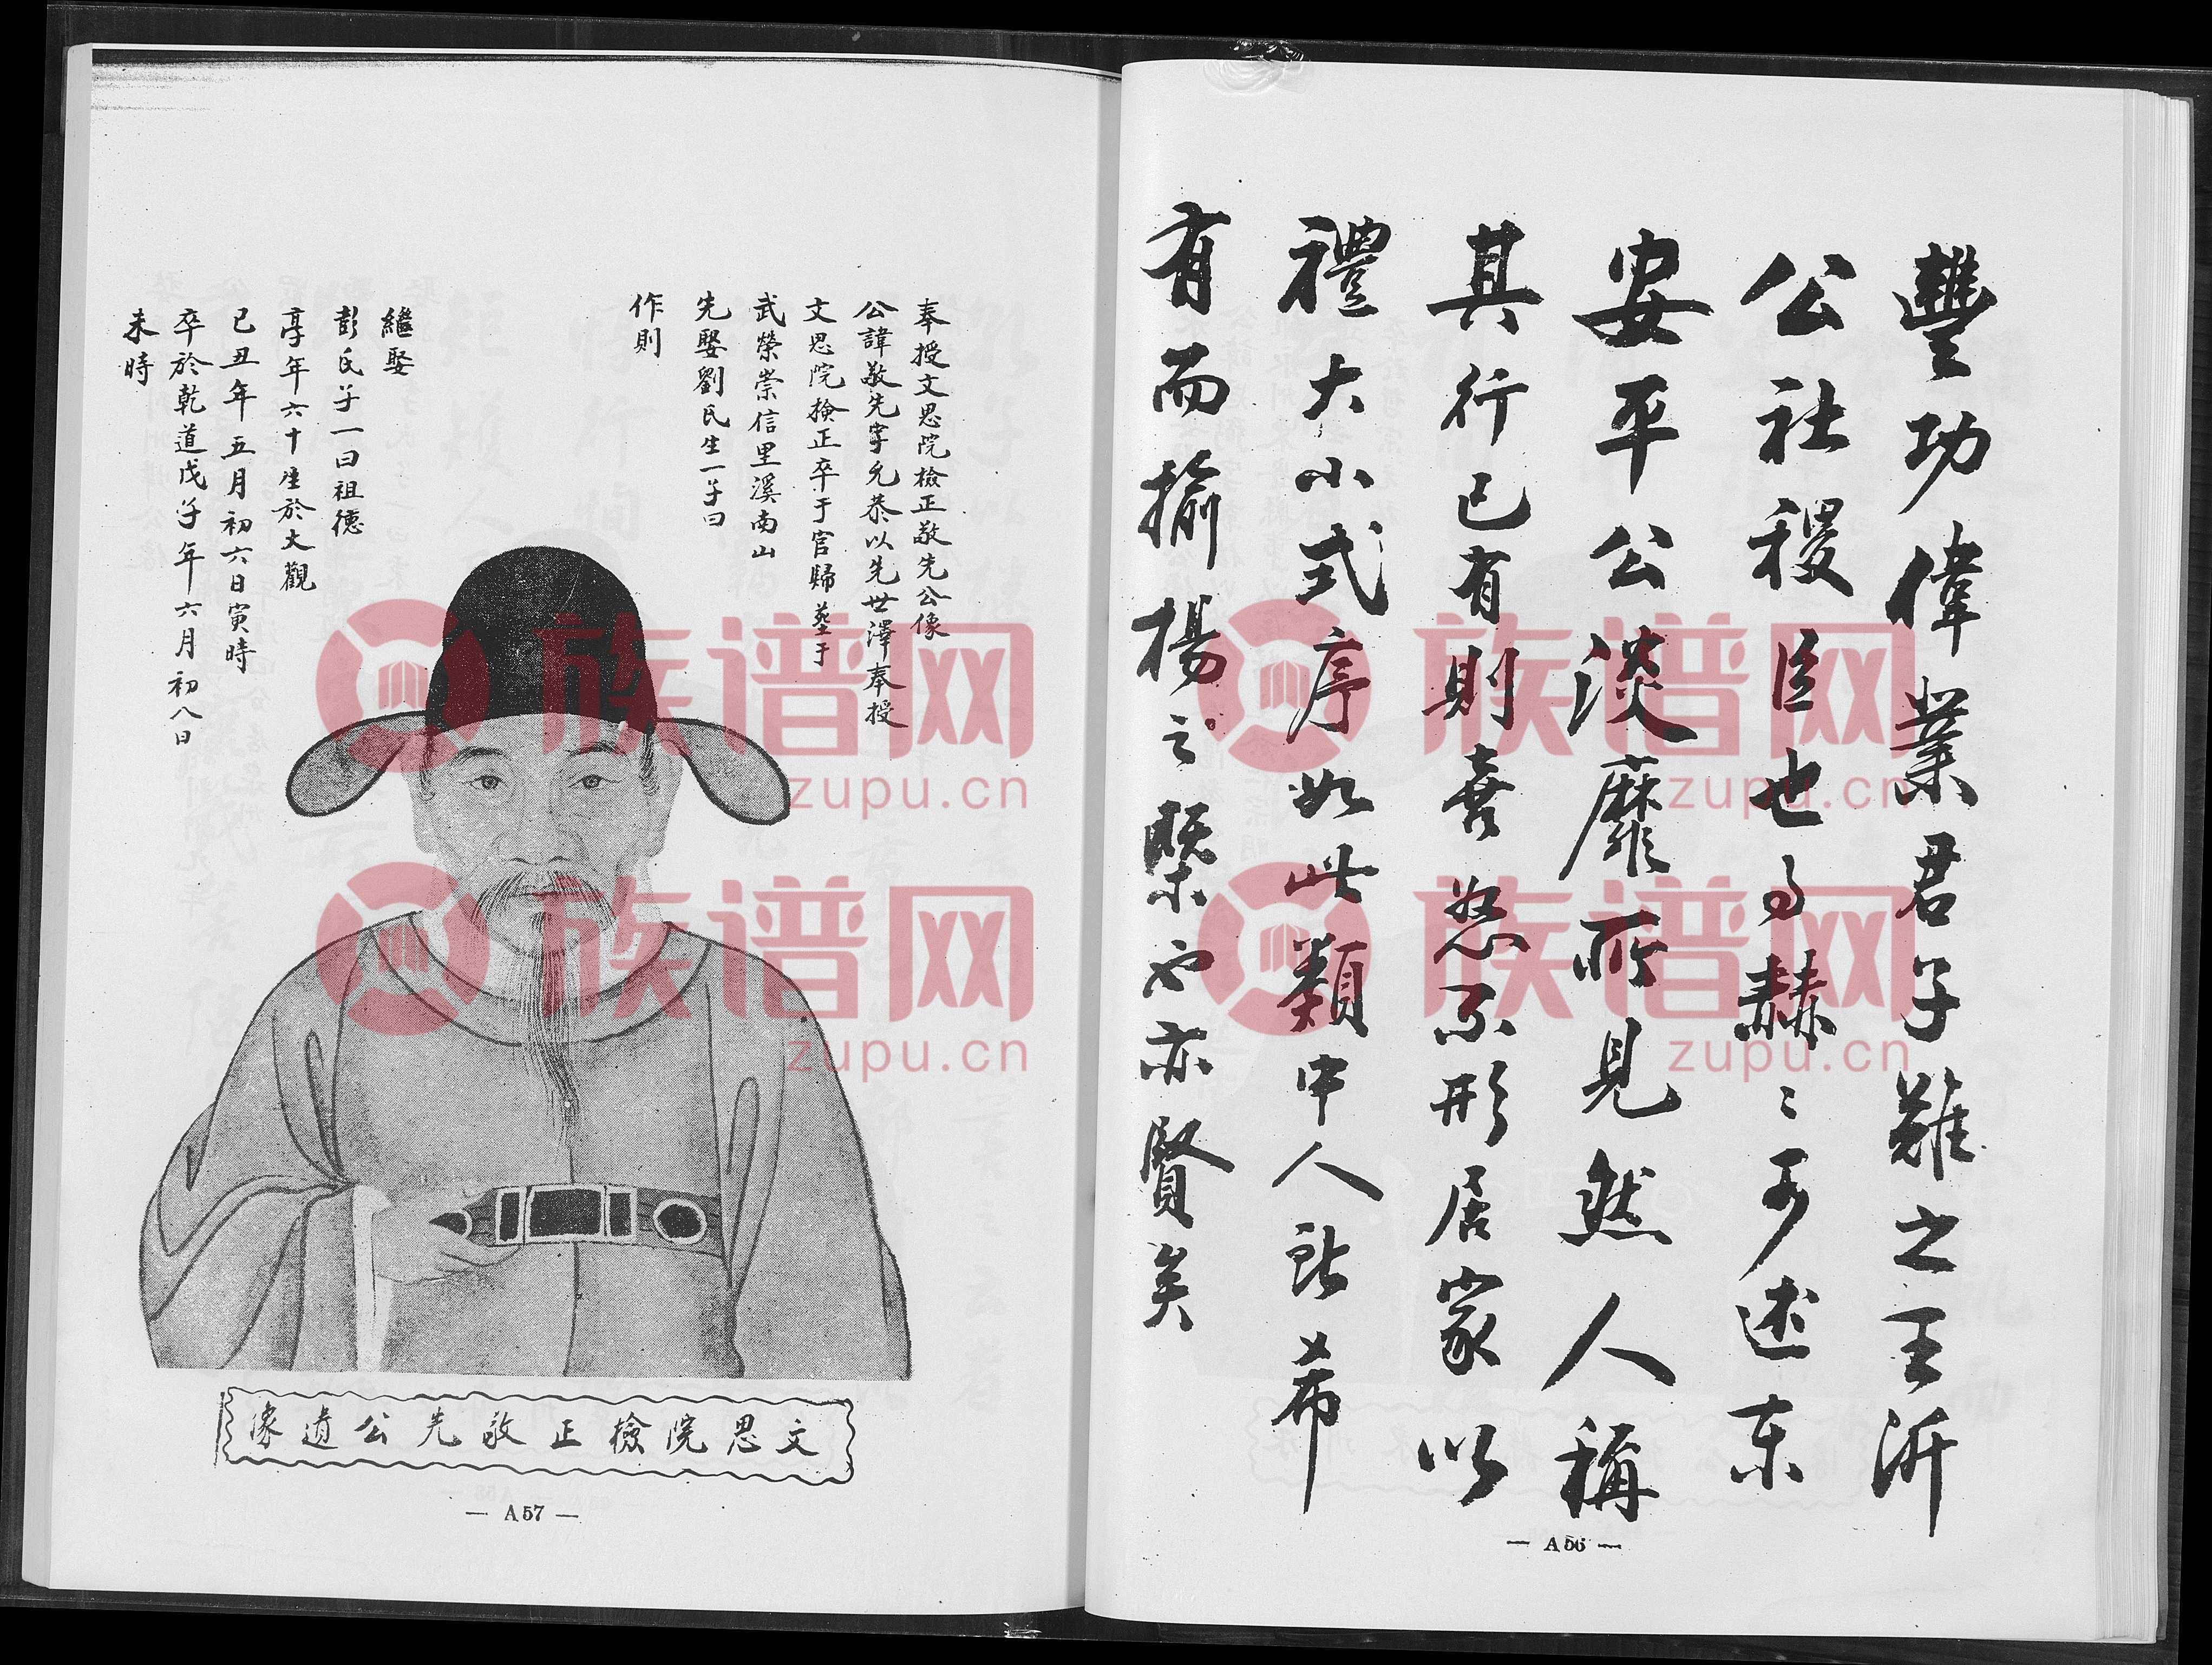 豐功偉業君子難之王沂
公社稷臣也事赫々可述東
安平公淡靡所見然人稱
其行已有則喜怒不形居家以
禮大小式序如此類中人所希
有而揄揚之槩也亦賢矣
— A56 —
奉授文思院檢正敬先公像
公諱敬先字允恭以先世澤奉授
文思院撿正卒于官歸塟于
武榮崇信里溪南山
先娶劉氏生一子曰
作則
繼娶
彭氏子一曰祖德
享年六十生於大觀
已丑年五月初六日寅時
卒於乾道戊子年六月初八日
未時
文思院檢正敬先公遺像
— A57 —
族谱网
zupu.cn
族谱网
zupu.cn
族谱网
zupu.cn
族谱网
zupu.cn